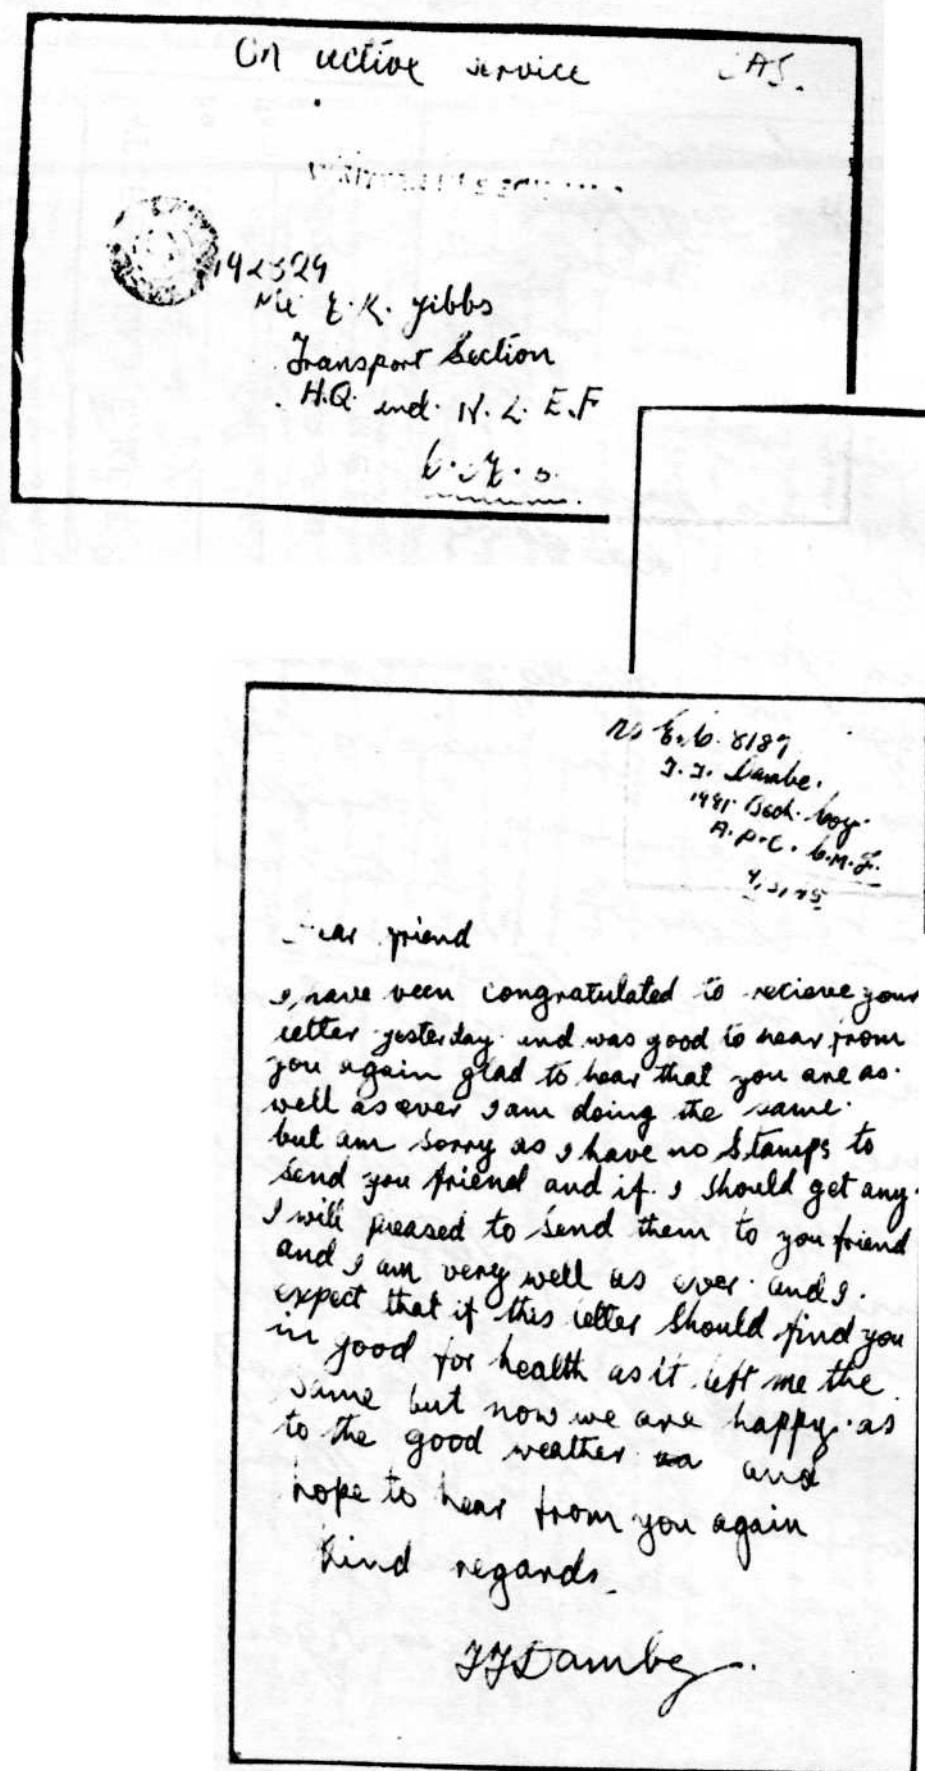 On active service OAS.
WRITTEN IN
142324
E. K. Gibbs
Transport Section
H.Q. 2nd. N. Z. E.F
No 8189
J. J. Dambe.
1981 Bech. Coy.
A.P.C. C.M.F.
Dear friend
I have been congratulated to recieve your
letter yesterday and was good to hear from
you again glad to hear that you are as
well as ever I am doing the same.
but am sorry as I have no stamps to
send you friend and if I should get any.
I will pleased to send them to you friend
and I am very well as ever and I.
expect that if this letter should find you
in good for health as it left me the
same but now we are happy as
to the good weather and
hope to hear from you again
Kind regards.
JJDambe.